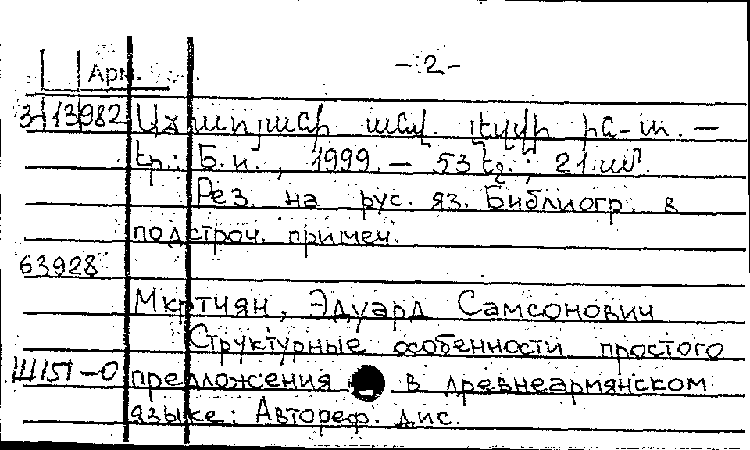 - 2 -
Арм.
31 13982 Աճառյանի անվ. լեզվի ին-տ. –
Եր.: Б.и., 1999. – 53 էջ.; 21 սմ.
Рез. на рус. яз. Библиогр. в
подстроч. примеч.
63928
Мкртчян, Эдуард Самсонович
Структурные особенности простого
Ш151-0 предложения в древнеармянском
языке: Автореф. дис.